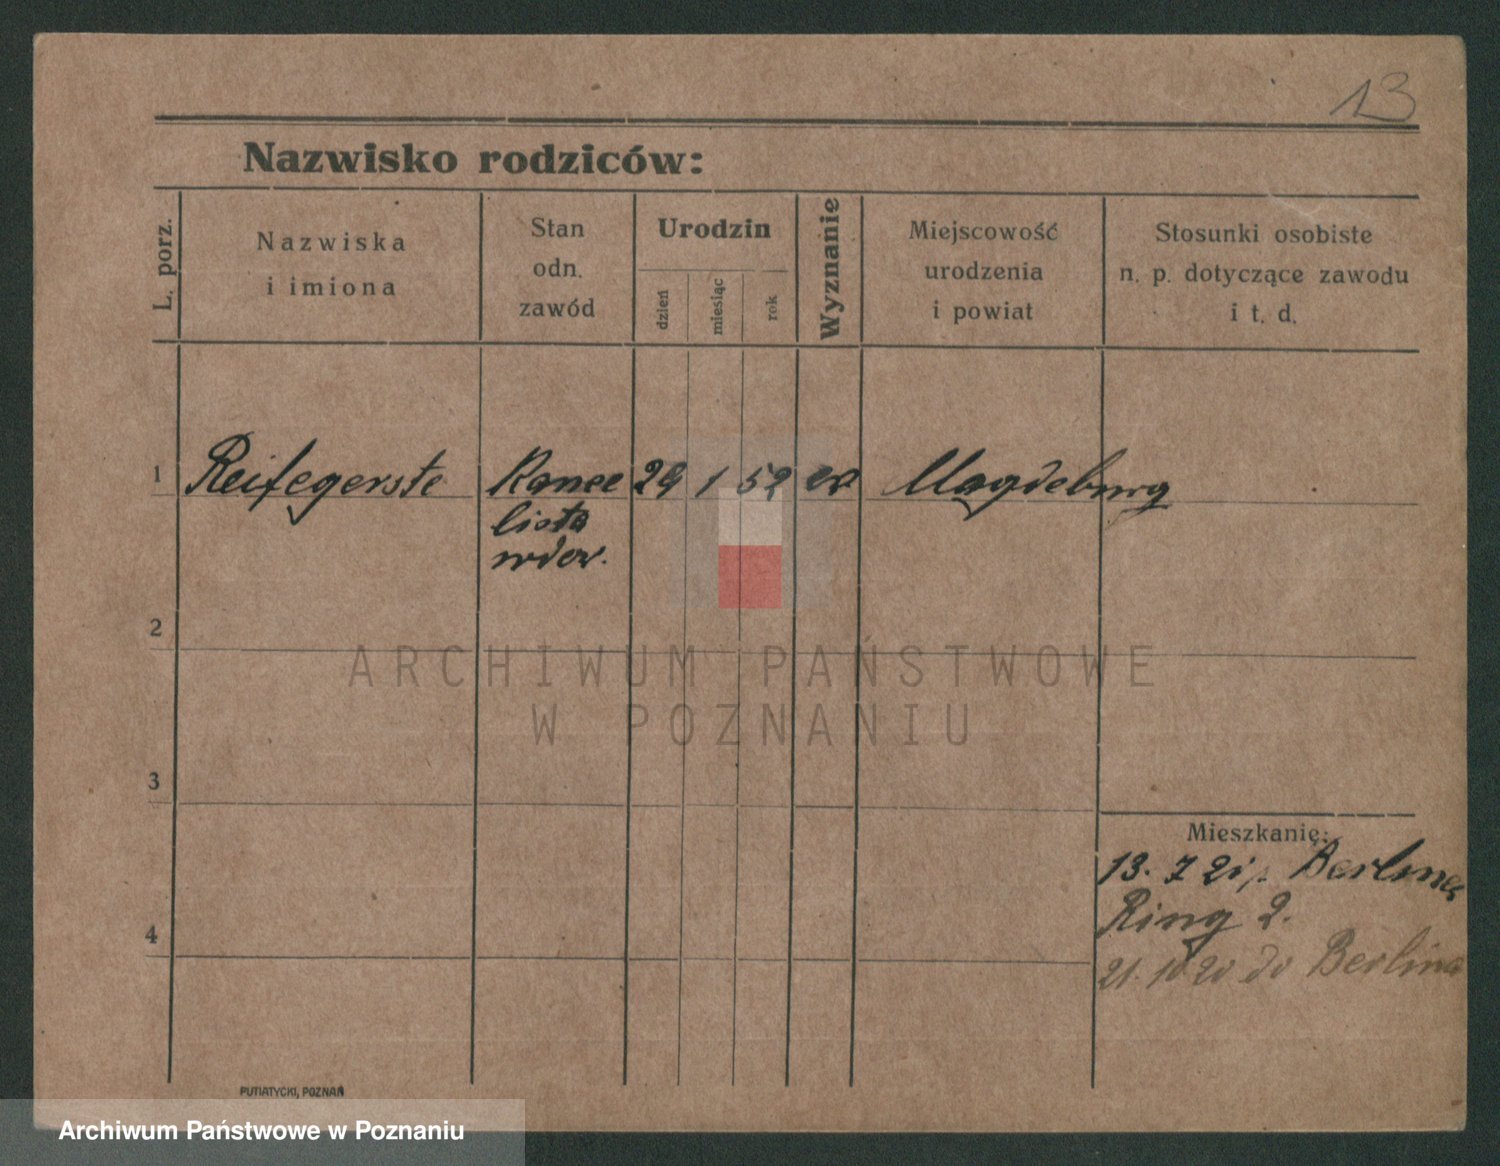 13
Nazwisko rodziców:
L. porz.
Nazwiska
i imiona
Stan
odn.
zawód
Urodzin
dzień
miesiąc
rok
Wyznanie
Miejscowość
urodzenia
i powiat
Stosunki osobiste
n. p. dotyczące zawodu
i t. d.
1 Reifegerste Kance 29 1 52 ew Magdeburg
lista
wdow.
2
ARCHIWUM PAŃSTWOWE
W POZNANIU
3
Mieszkanie:
13. 7 Berlina
Ring 2.
4
21. 10 20 do Berlina
PUTIATYCKI, POZNAŃ
Archiwum Państwowe w Poznaniu